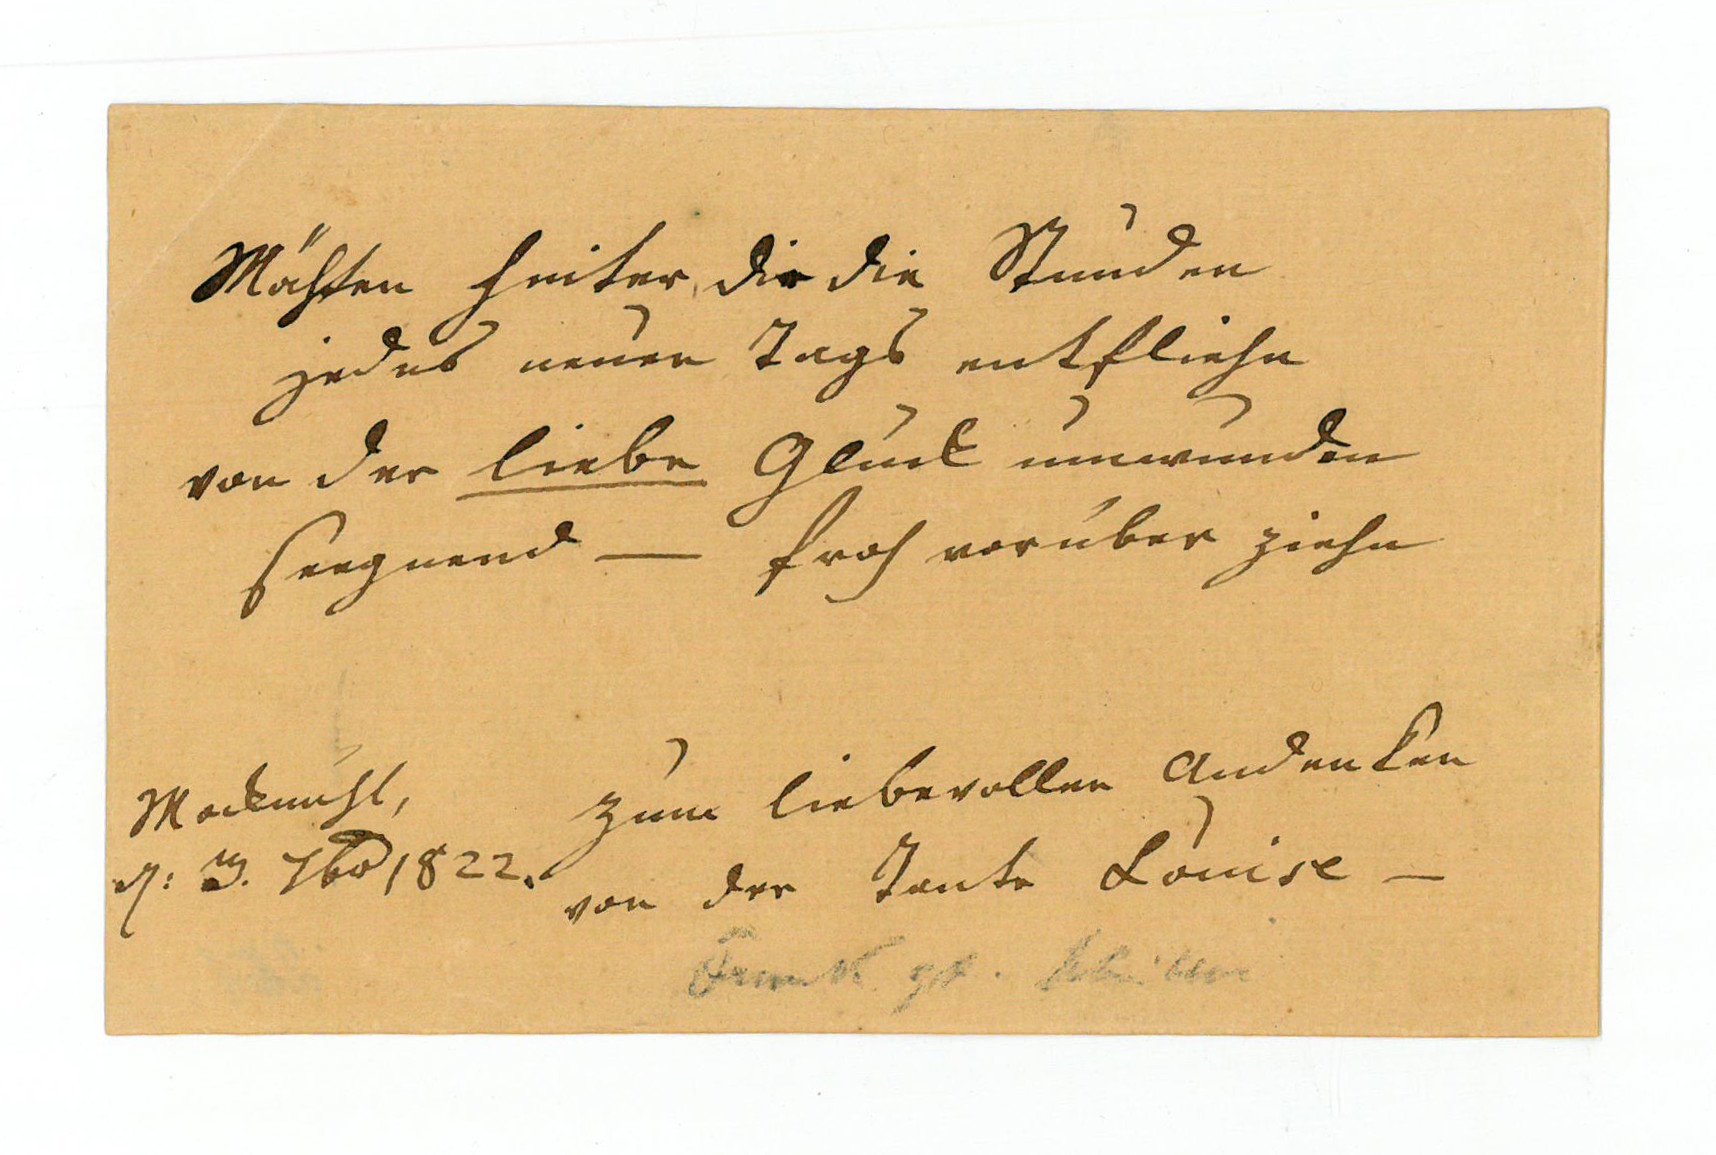 Möchten heiter dir die Stunden
jedes neuen Tags entfliehn
von der liebe Glück umwunden
seegnend — froh vorüber ziehn
Möckmühl,
d: 3. 7br 1822.
zum liebevollen Andenken
von der Tante Louise —
Frank gb. Schiller